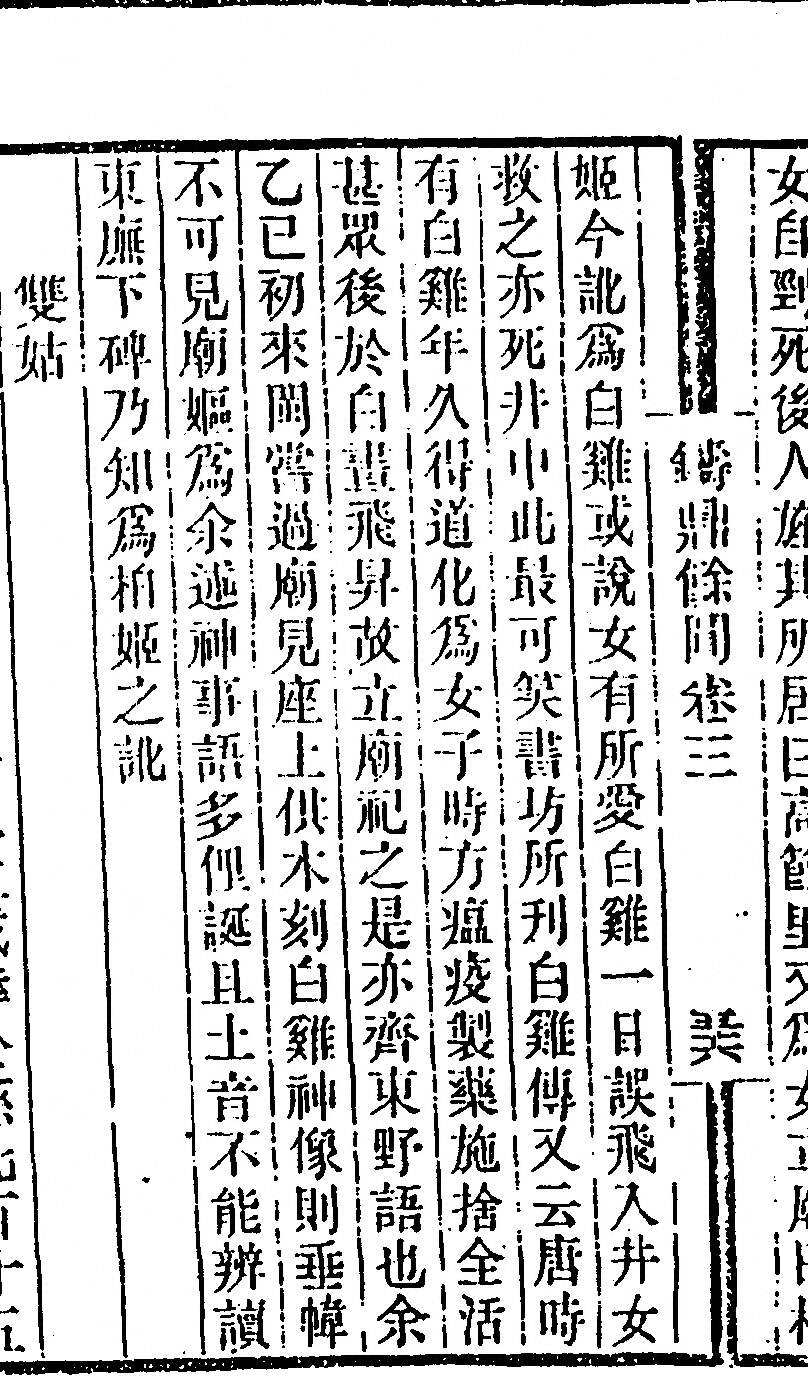 女自剄死後人旌其所居曰高節里又爲女立廟曰柏
鑄鼎餘聞卷三
姬今訛爲白雞或說女有所愛白雞一日誤飛入井女
救之亦死井中此最可笑書坊所刊白雞傳又云唐時
有白雞年久得道化爲女子時方瘟疫製藥施捨全活
甚眾後於白晝飛昇故立廟祀之是亦齊東野語也余
乙巳初來閩嘗過廟見座上供木刻白雞神像則垂幃
不可見廟嫗爲余述神事語多俚誕且土音不能辨讀
東廡下碑乃知爲柏姬之訛
雙姑